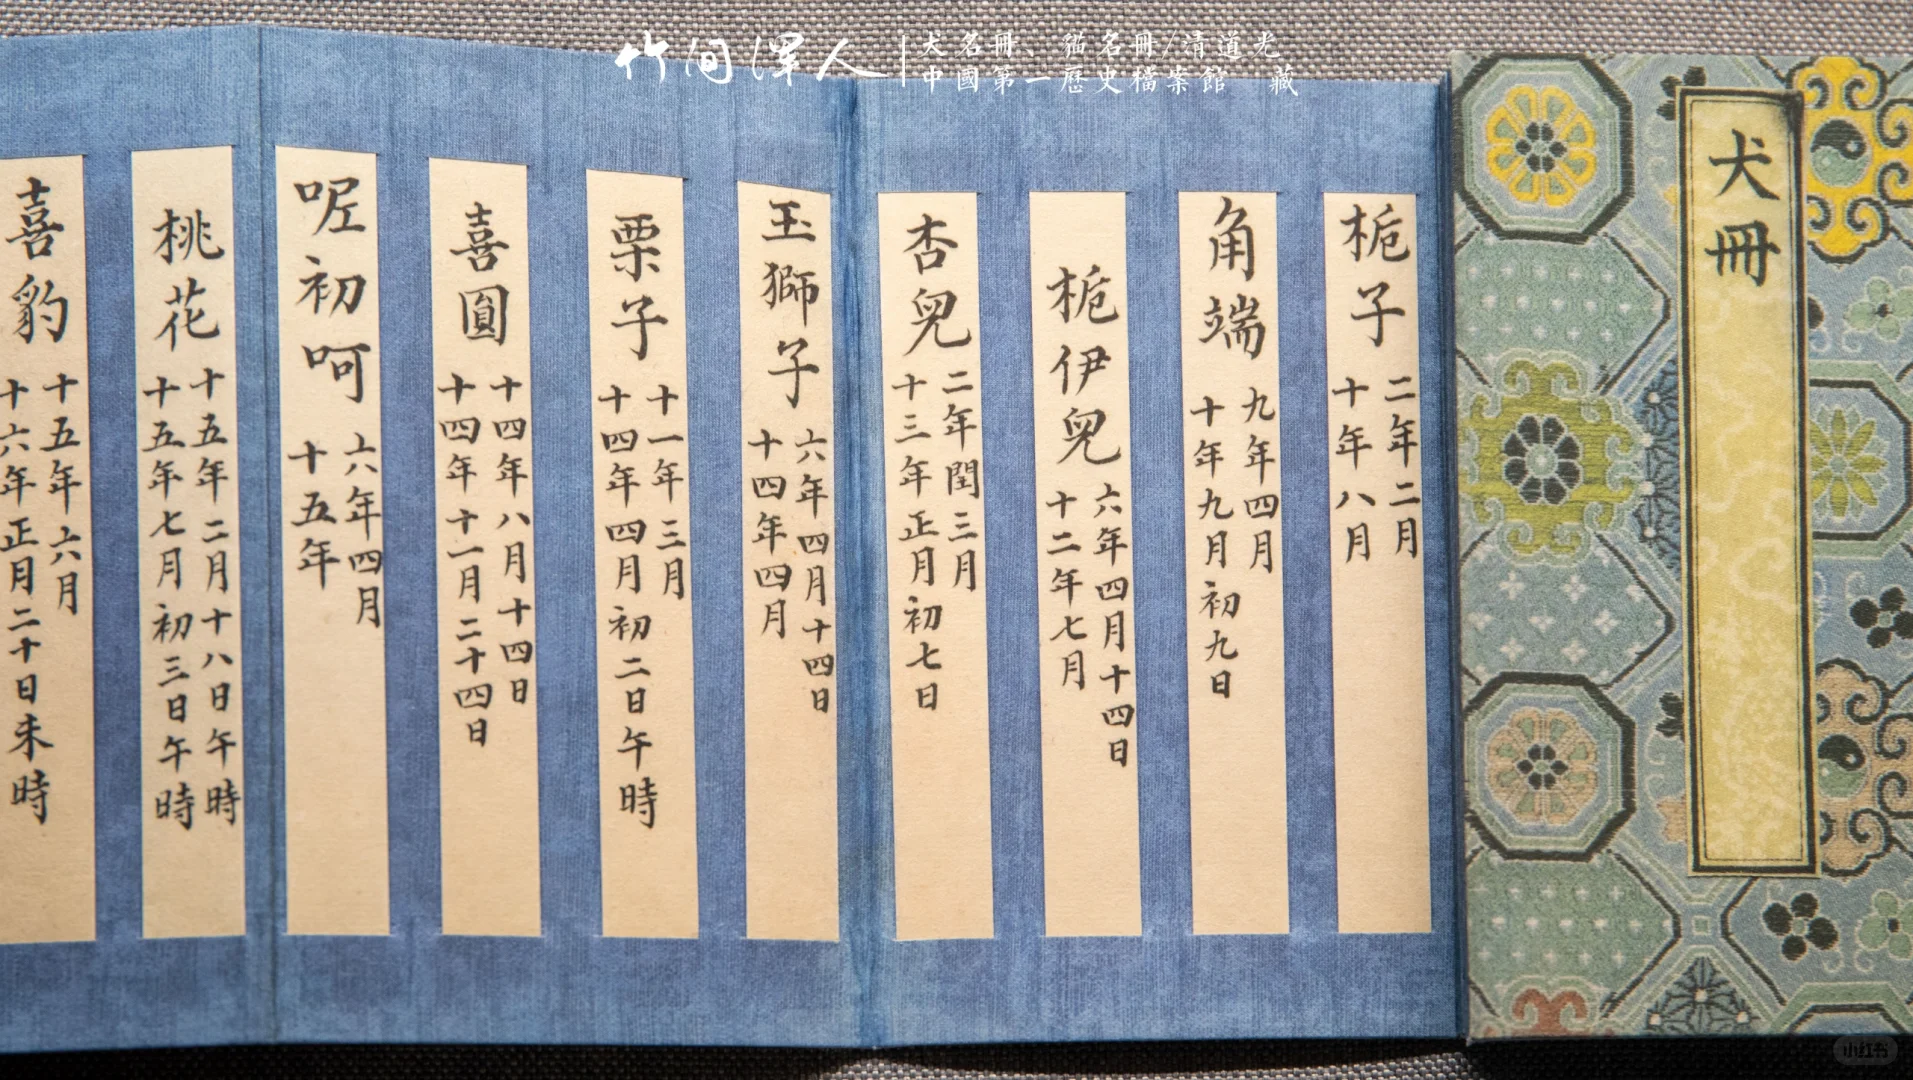 竹間澤人
犬名冊、貓名冊/清道光
中國第一歷史檔案館 藏
犬冊
栀子
二年二月
十年八月
角端
九年四月
十年九月初九日
栀伊兒
六年四月十四日
十二年七月
杏兒
二年閏三月
十三年正月初七日
玉獅子
六年四月十四日
十四年四月
栗子
十一年三月
十四年四月初二日午時
喜圓
十四年八月十四日
十四年十一月二十四日
呢初呵
六年四月
十五年
桃花
十五年二月十八日午時
十五年七月初三日午時
喜豹
十五年六月
十六年正月二十日未時
小红书